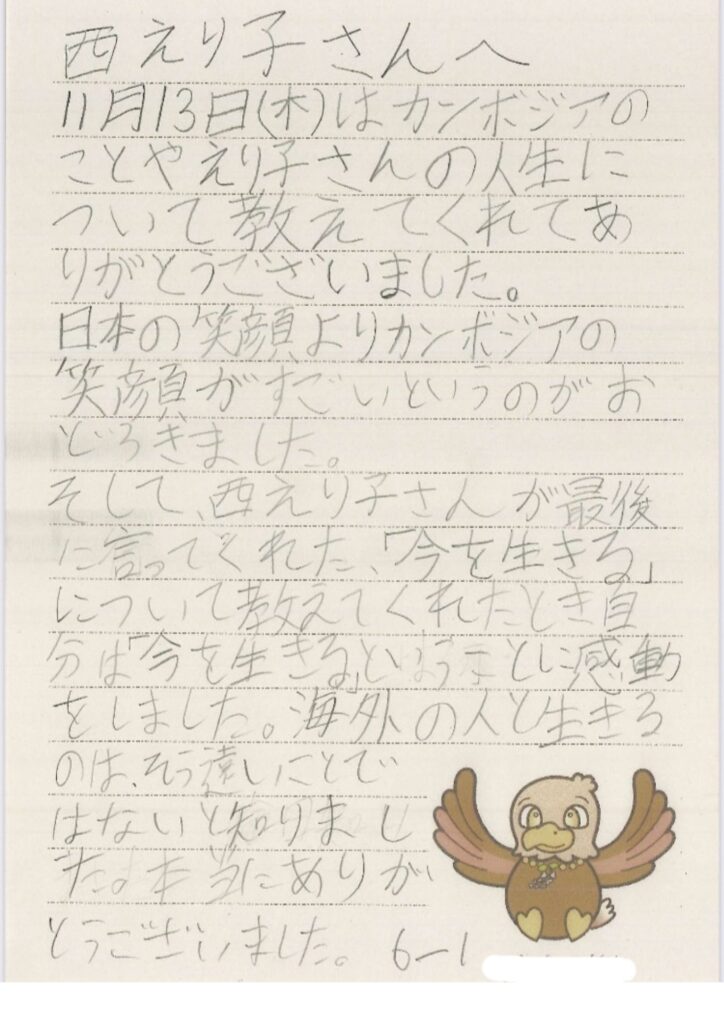 西えり子さんへ
11月13日(木)はカンボジアの
ことやえり子さんの人生に
ついて教えてくれてあ
りがとうございました。
日本の笑顔よりカンボジアの
笑顔がすごいというのがお
どろぎました。
そして、西えり子さんが最後
に言ってくれた、「今を生きる」
について教えてくれたとき自
分は「今を生きる」ということに感動
をしました。海外の人と生きる
のは、そう遠いことで
はないと知りまし
た。本当にありが
とうございました。 6-1